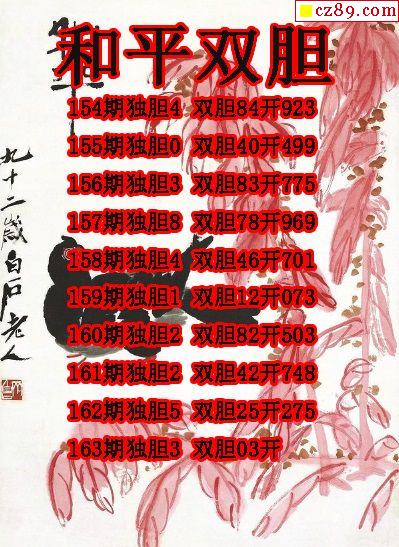 cz89.com
和平双胆
154期独胆4 双胆84开923
155期独胆0 双胆40开499
156期独胆3 双胆83开775
157期独胆8 双胆78开969
158期独胆4 双胆46开701
159期独胆1 双胆12开073
160期独胆2 双胆82开503
161期独胆2 双胆42开748
162期独胆5 双胆25开275
163期独胆3 双胆03开
九十二岁白石老人